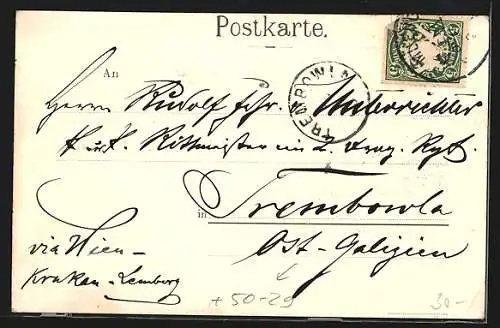 Postkarte.
An
Herrn Rudolf Frhr. v. Unterrichter
k. u. k. Rittmeister im 2. Drag. Rgt.
in Trembowla
Ost-Galizien
via Wien –
Krakau – Lemberg
TREMBOWLA
+ 50-29
30-
5